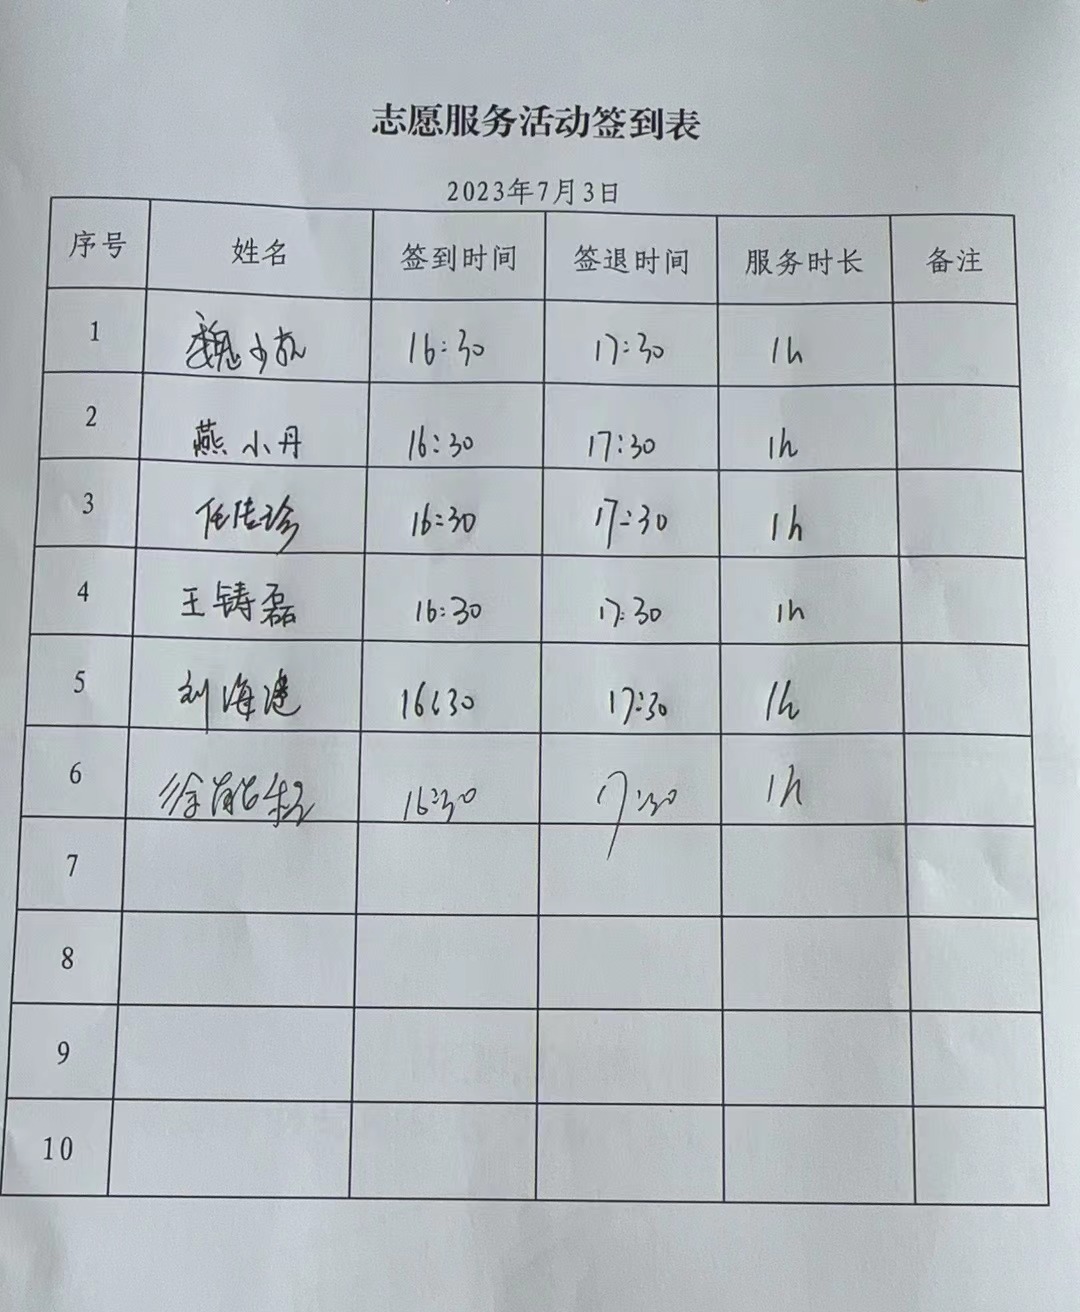 志愿服务活动签到表
2023年7月3日
序号 姓名 签到时间 签退时间 服务时长 备注
1 魏 16:30 17:30 1h
2 燕小丹 16:30 17:30 1h
3 任佳珍 16:30 17:30 1h
4 王铸磊 16:30 17:30 1h
5 刘海建 16:30 17:30 1h
6 徐 16:30 17:30 1h
7
8
9
10